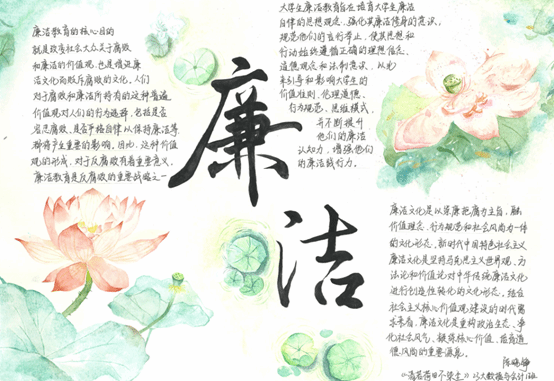 廉洁教育的核心目的
就是改变社会大众关于腐败
和廉洁的价值观,也是增进廉
洁文化而毁斥腐败的文化,人们
对于腐败和廉洁所持有的这种普遍
价值观对人们的行为选择,包括是否
容忍腐败、是否严格自律以保持廉洁等
都将产生重要的影响。因此,这种价值
观的形成,对于反腐败有着重要意义。
廉洁教育是反腐败的重要战略之一
大学生廉洁教育旨在培育大学生廉洁
自律的思想观念,强化其廉洁修身的意识,
规范他们的言行举止,使其思想和
行动始终遵循正确的理想信念、
道德观念和法制意识,从而
牵引导和影响大学生的
价值准则、伦理道德、
行为规范、思维模式,
并不断提升
他们的廉洁
认知力,增强他们
的廉洁践行力。
廉洁
廉洁文化是以崇廉拒腐为主旨,融
价值理念、行为规范和社会风尚为一体
的文化形态。新时代中国特色社会主义
廉洁文化是坚持马克思主义世界观、方
法论和价值论对中华传统廉洁文化
进行创造性转化的文化形态,结合
社会主义核心价值观建设的时代需
求来看,廉洁文化是重构政治生态、净
化社会风气、凝练核心价值、培育道
德风尚的重要源泉。
大数据与会计